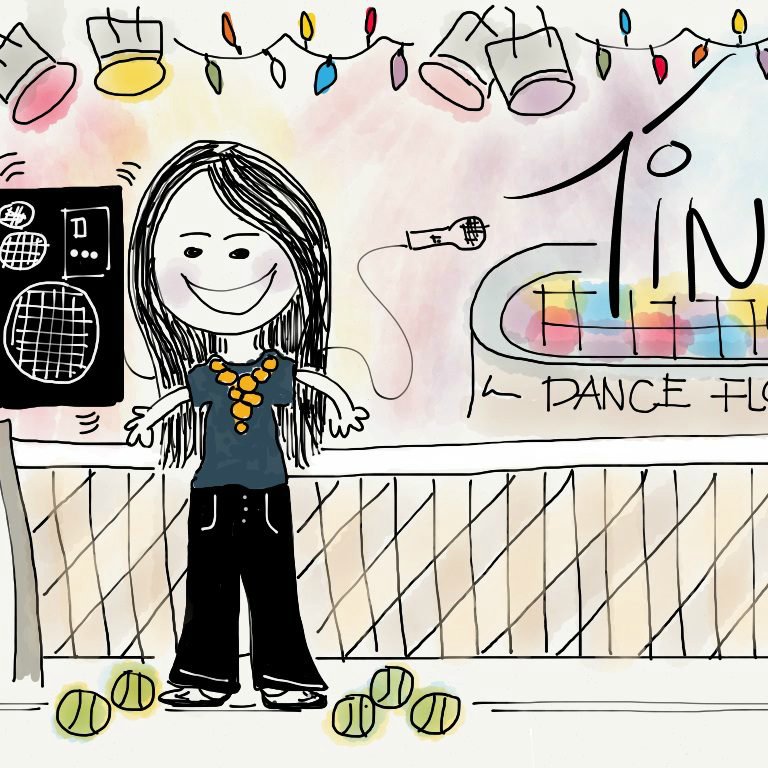 TiN
DANCE FLO